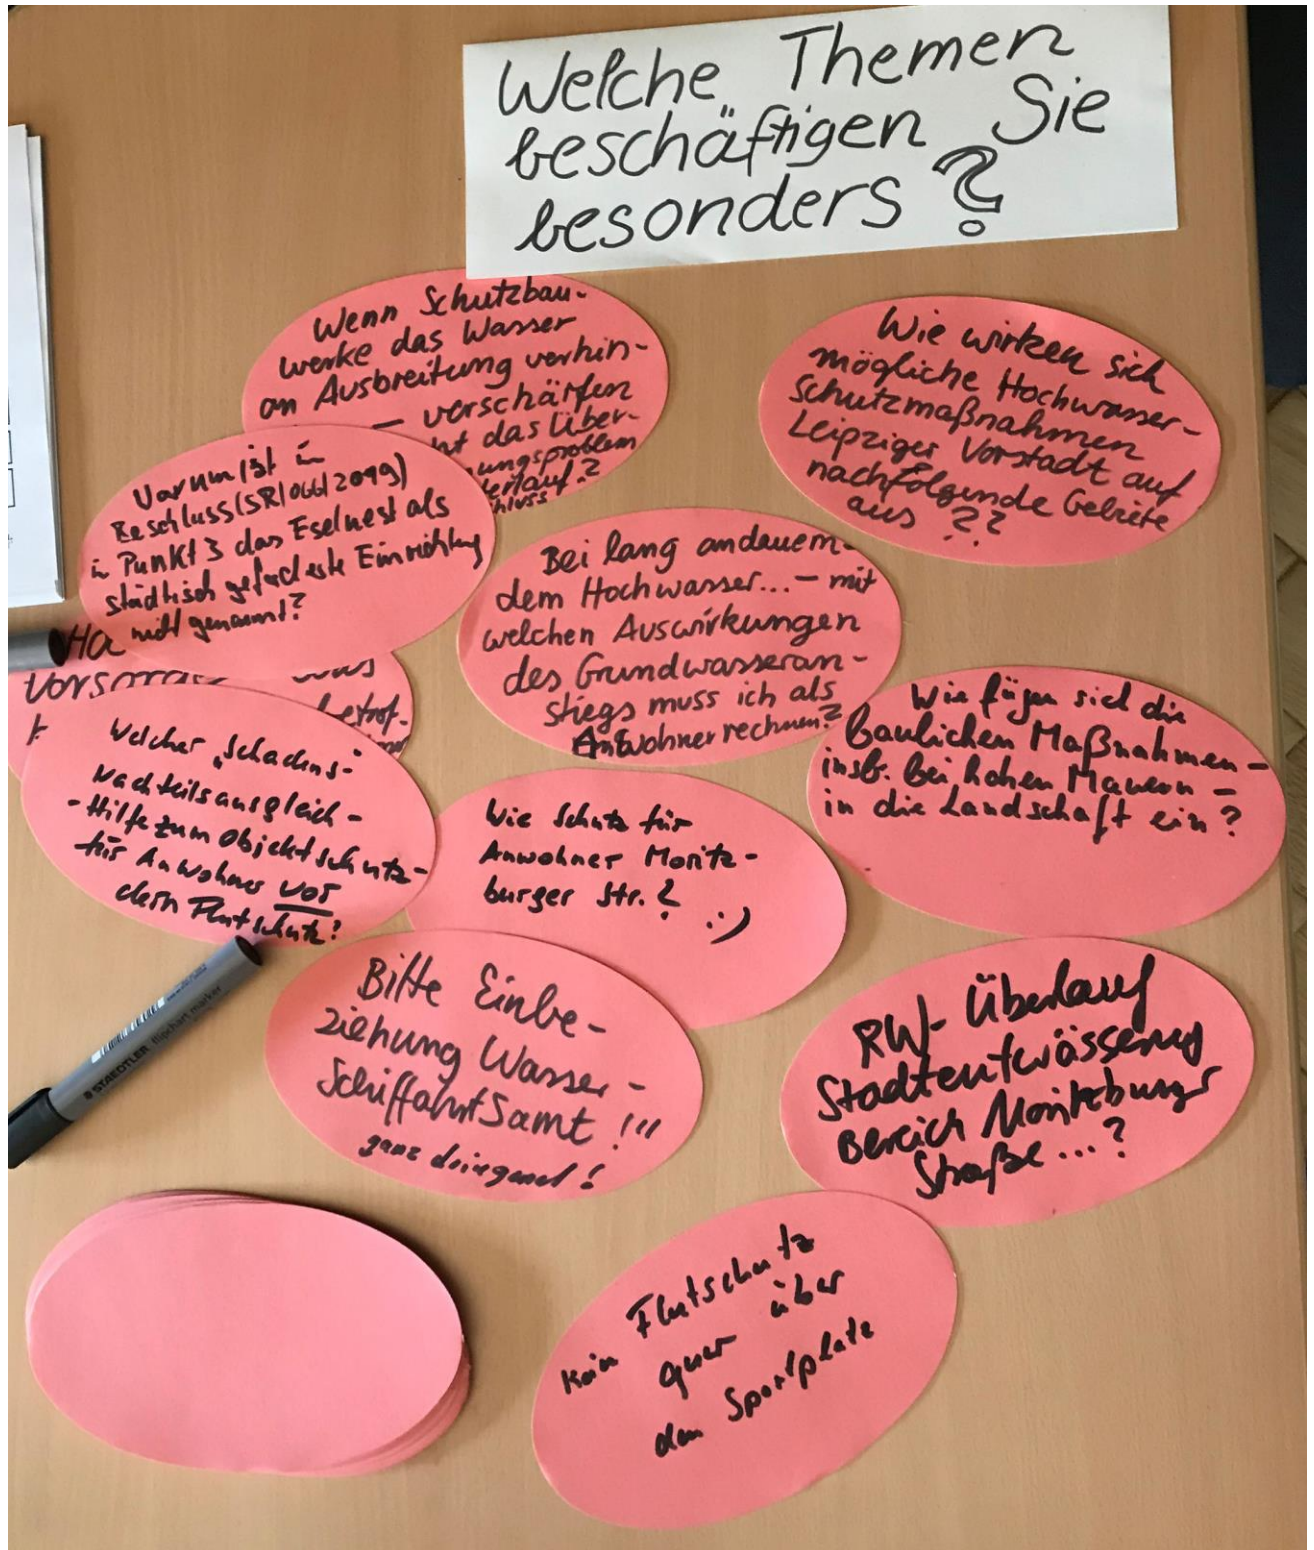 Welche Themen
beschäftigen Sie
besonders?
Wenn Schutzbau-
werke das Wasser
an Ausbreitung verhin-
verschärfen
das Über-
ungsproblem
Wie wirken sich
mögliche Hochwasser-
Schutzmaßnahmen
Leipziger Vorstadt auf
nachfolgende Gebiete
aus ??
Warum ist in
Beschluss (SR/066/2019)
in Punkt 3 das Eselnest als
städtisch geförderte Einrichtung
nicht genannt?
Bei lang andauern-
dem Hochwasser... - mit
welchen Auswirkungen
des Grundwasseran-
stiegs muss ich als
Anwohner rechnen?
Wie fügen sich die
baulichen Maßnahmen -
insb. bei hohen Mauern -
in die Landschaft ein?
Welcher "Schadens"-
Nachteilsausgleich -
- Hilfe zum Objektschutz -
für Anwohner vor
dem Flutschutz?
Wie Schutz für
Anwohner Moritz-
burger Str.?
:)
Bitte Einbe-
ziehung Wasser-
Schiffahrtsamt !!!
ganz dringend!
RW-Überlauf
Stadtentwässerung
Bereich Moritzburger
Straße...?
Kein Flutschutz
quer über
den Sportplatz
STAEDTLER flipchart marker